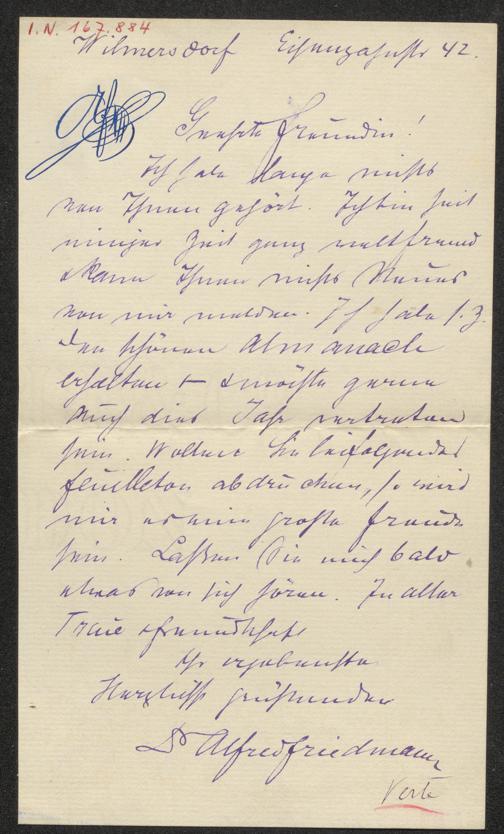 I.N. 167.884
Wilmersdorf Eisenzahnstr 42.
Geehrte Freundin!
Ich habe lange nichts
von Ihnen gehört. Ich bin seit
einiger Zeit ganz weltfremd
& kann Ihnen nichts Neues
von mir melden. Ich habe s. Z.
den schönen Almanach
erhalten & möchte gerne
auch dies Jahr vertreten
sein. Wollen Sie beifolgendes
Feuilleton abdrucken, so wird
mir es eine große Freude
sein. Laßen Sie mich bald
etwas von sich hören. In alter
Treue & Freundschaft
Ihr ergebenster
Herzlichst grüßender
Dr Alfred Friedmann
Verte